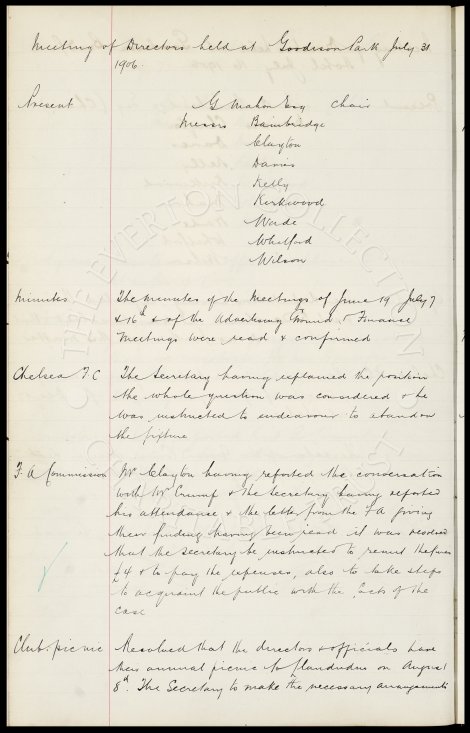 Meeting of Directors held at Goodison Park July 31
1906.
Present G Mahon Esq Chair
Messrs Bainbridge
Clayton
Davies
Kelly
Kirkwood
Wade
Whitford
Wilson
Minutes The minutes of the Meetings of June 19 July 7
& 16th & of the Advertising Ground & Finance
Meetings were read & confirmed
Chelsea F C The Secretary having explained the position
the whole question was considered & he
was instructed to endeavour to abandon
the fixture
F A Commission Mr Clayton having reported the conversation
with Mr Crump & the Secretary having reported
his attendance & the letter from the F A giving
their finding having been read it was resolved
that the secretary be instructed to remit the fine
£4 & to pay the expenses, also to take steps
to acquaint the public with the facts of the
case
Club picnic Resolved that the directors & officials have
their annual picnic to Llandudno on August
8th. The Secretary to make the necessary arrangements
THE EVERTON COLLECTION